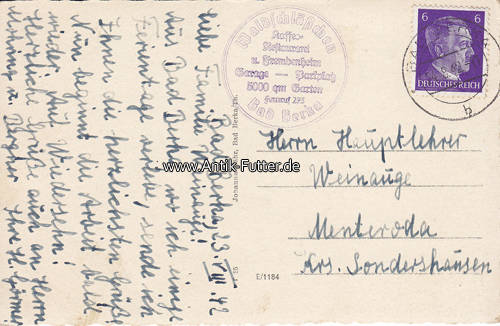 Bad Berka, 23. VII 42
Liebe Familie
Aus Bad Berka, wo ich einige
Ferientage verlebe, sende ich
Ihnen die herzlichsten Grüße
Nun beginnt die Arbeit bald
wieder. Auf Wiedersehn!
Herzliche Grüße auch an Herrn
Ihre H.
Waldschlößchen
Kaffee-
Restaurant
u. Fremdenheim
Garage — Parkplatz
5000 qm Garten
Fernruf 295
Bad Berka
6 6
DEUTSCHES REICH
b
www.Antik-Futter.de
Bad Berka/Th.
E/1184
Herrn Hauptlehrer
Weinauge
Menteroda
Krs. Sondershausen